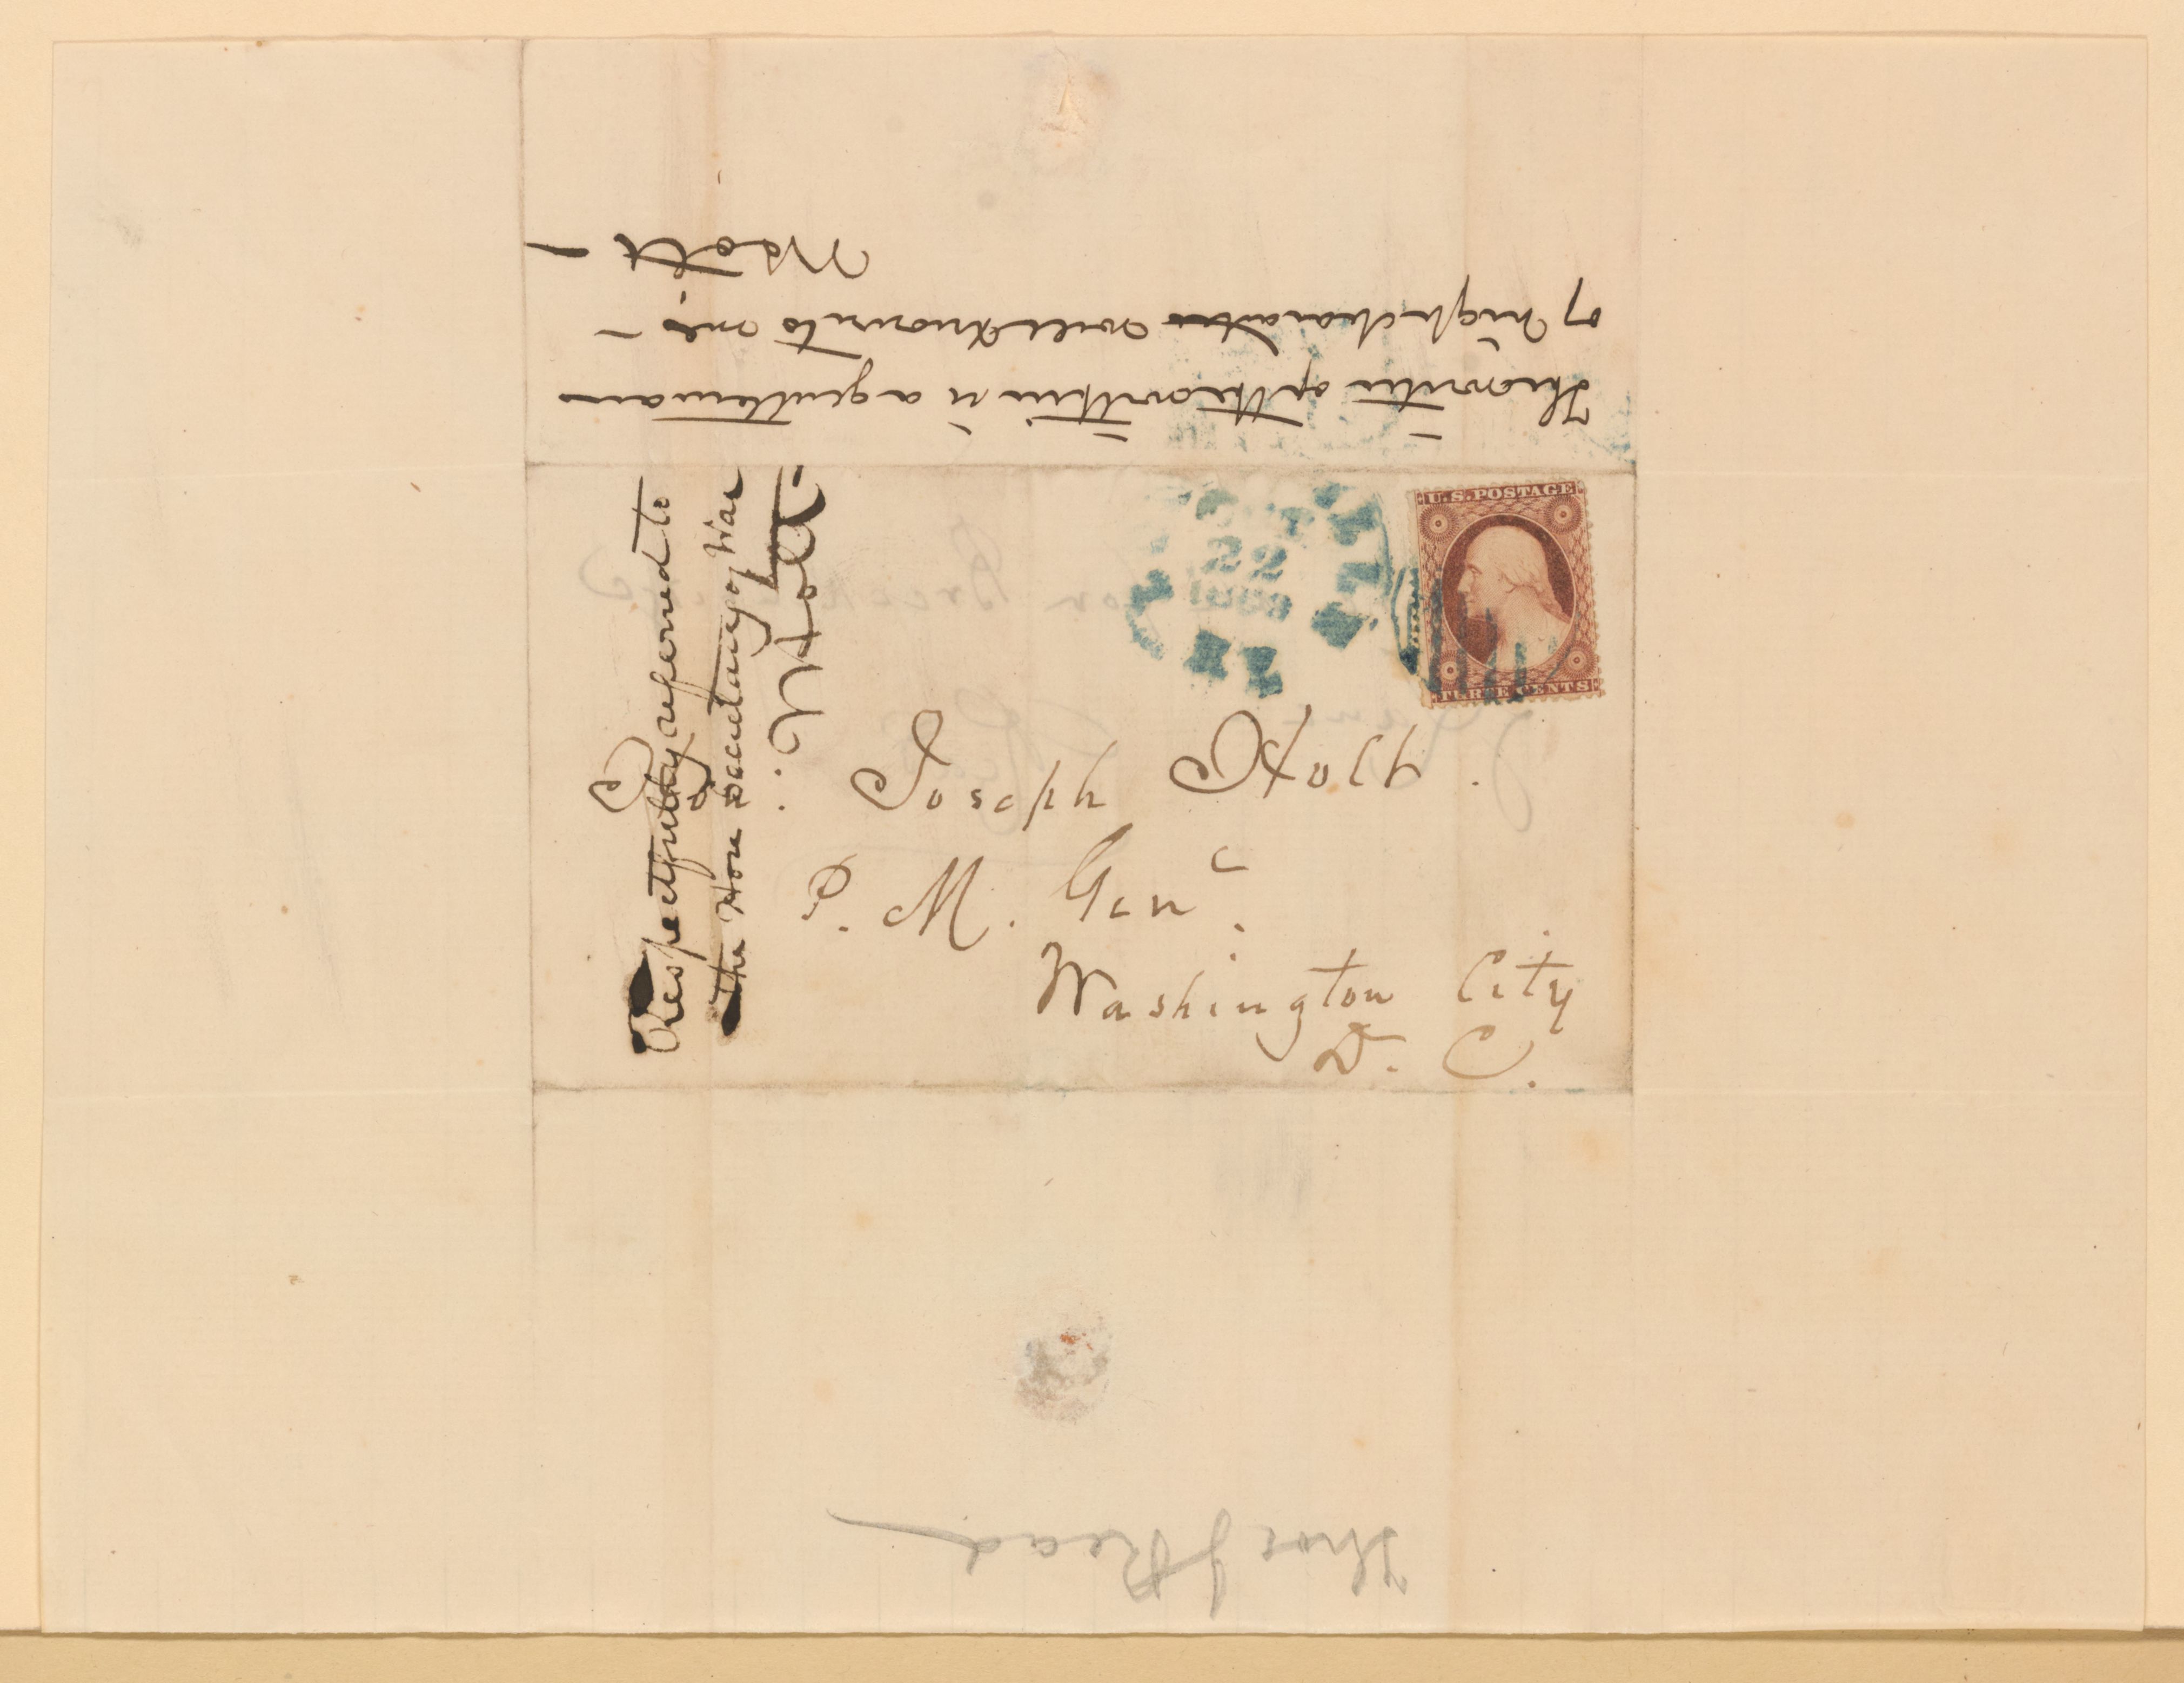 The writer of the within is a gentleman
of high character well known to me –
J Holt –
Respectfully referred to
the Hon Secretary of War
J Holt
22
U.S. POSTAGE
THREE CENTS
Joseph Holt.
P. M. Genl.
Washington City
D. C.
Thos J Read